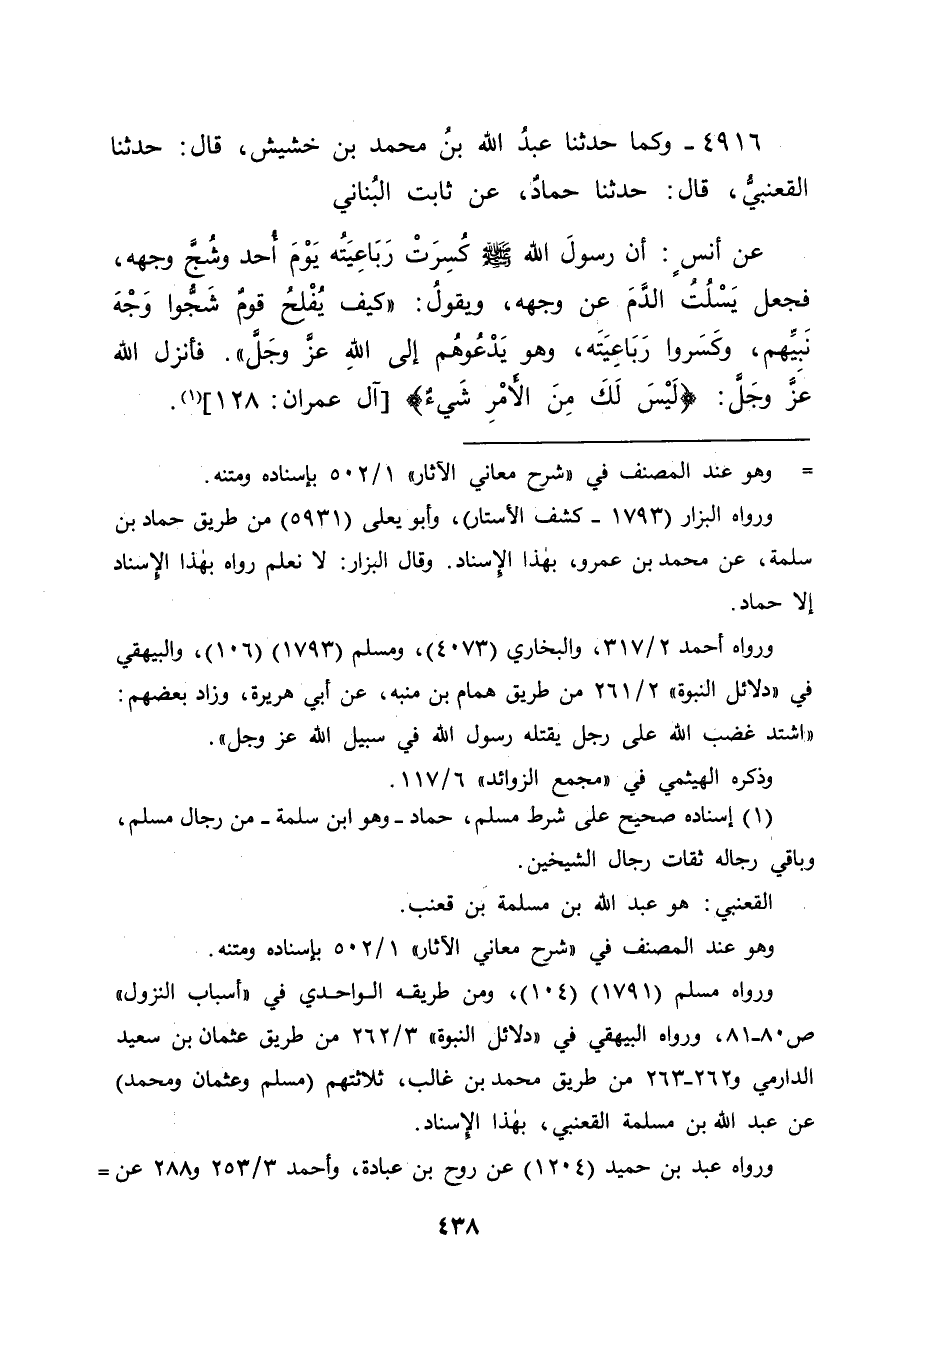 ٤٩١٦ ـ وكما حدثنا عبدُ الله بنُ محمد بن خشيش، قال: حدثنا
القعنبيُّ، قال: حدثنا حمادٌ، عن ثابت البُناني
عن أنسٍ: أن رسولَ الله ﷺ كُسِرَتْ رَبَاعِيَتُه يَوْمَ أُحد وشُجَّ وجهه،
فجعل يَسْلُتُ الدَّمَ عن وجهه، ويقولُ: «كيف يُفْلحُ قومٌ شَجُّوا وَجْهَ
نَبِيِّهم، وكَسَروا رَبَاعِيَتَه، وهو يَدْعُوهُم إلى اللهِ عزَّ وجَلَّ». فأنزل الله
عزَّ وجَلَّ: ﴿لَيْسَ لَكَ مِنَ الأَمْرِ شَيءٌ﴾ [آل عمران: ١٢٨](١).
= وهو عند المصنف في «شرح معاني الآثار» ٥٠٢/١ بإسناده ومتنه.
ورواه البزار (١٧٩٣ ـ كشف الأستار)، وأبو يعلى (٥٩٣١) من طريق حماد بن
سلمة، عن محمد بن عمرو، بهٰذا الإِسناد. وقال البزار: لا نعلم رواه بهٰذا الإِسناد
إلا حماد.
ورواه أحمد ٣١٧/٢، والبخاري (٤٠٧٣)، ومسلم (١٧٩٣) (١٠٦)، والبيهقي
في «دلائل النبوة» ٢٦١/٢ من طريق همام بن منبه، عن أبي هريرة، وزاد بعضهم:
«اشتد غضب الله على رجل يقتله رسول الله في سبيل الله عز وجل».
وذكره الهيثمي في «مجمع الزوائد» ١١٧/٦.
(١) إسناده صحيح على شرط مسلم، حماد ـ وهو ابن سلمة ـ من رجال مسلم،
وباقي رجاله ثقات رجال الشيخين.
القعنبي: هو عبد الله بن مسلمة بن قعنب.
وهو عند المصنف في «شرح معاني الآثار» ٥٠٢/١ بإسناده ومتنه.
ورواه مسلم (١٧٩١) (١٠٤)، ومن طريقه الواحدي في «أسباب النزول»
ص٨٠ـ٨١، ورواه البيهقي في «دلائل النبوة» ٢٦٢/٣ من طريق عثمان بن سعيد
الدارمي و٢٦٢ـ٢٦٣ من طريق محمد بن غالب، ثلاثتهم (مسلم وعثمان ومحمد)
عن عبد الله بن مسلمة القعنبي، بهٰذا الإِسناد.
ورواه عبد بن حميد (١٢٠٤) عن روح بن عبادة، وأحمد ٢٥٣/٣ و٢٨٨ عن =
٤٣٨